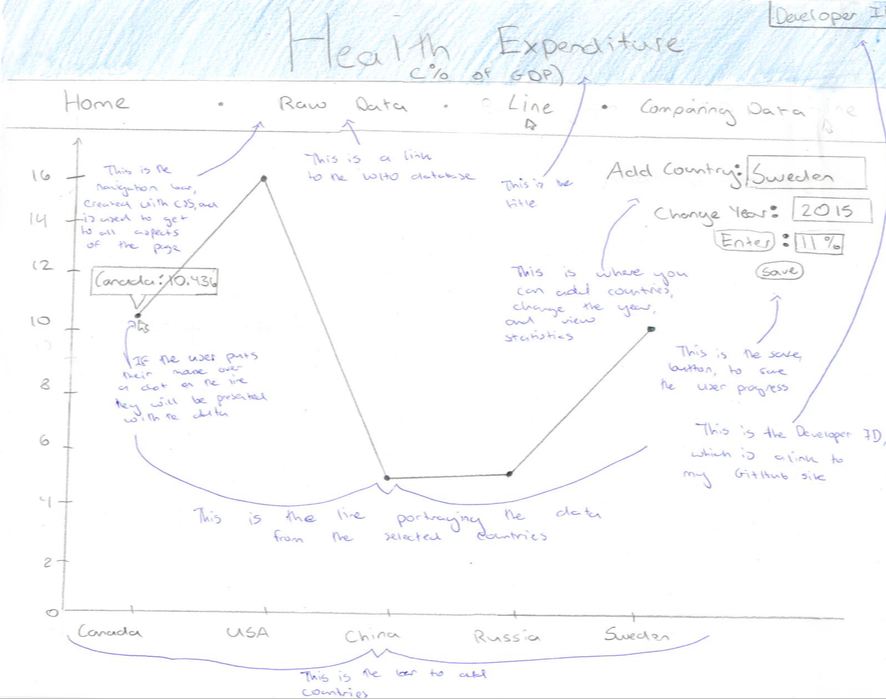 Developer I
Health Expenditure
(% of GDP)
Home • Raw Data • Line • Comparing Data
Add Country: Sweden
Change Year: 2015
Enter : 11%
Save
This is the
navigation bar,
created with CSS, and
is used to get
to all aspects
of the page
This is a link
to the WHO database
This is the
title
This is where you
can add countries,
change the year,
and view
statistics
This is the save
button, to save
the user progress
This is the Developer ID,
which is a link to
my GitHub site
Canada: 10.4%
If the user puts
their mouse over
a dot on the line
they will be presented
with the data
This is the line portraying the data
from the selected countries
16
14
12
10
8
6
4
2
0
Canada USA China Russia Sweden
This is the bar to add
countries